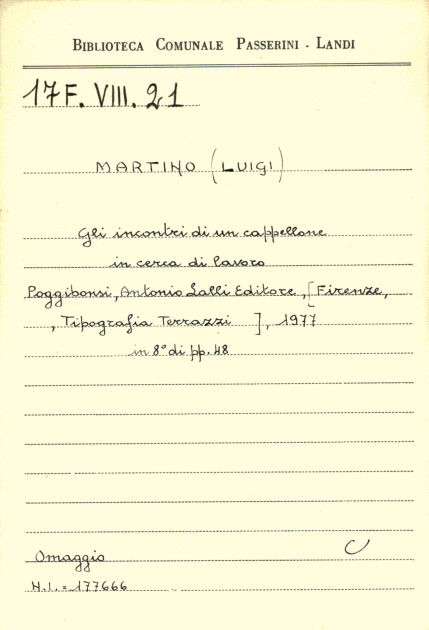 BIBLIOTECA COMUNALE PASSERINI - LANDI
17 F. VIII. 21
MARTINO (LUIGI)
Gli incontri di un cappellone
in cerca di lavoro
Poggibonsi, Antonio Lalli Editore, [Firenze,
, Tipografia Terrazzi ], 1977
in 8° di pp. 48
C
Omaggio
N.I. = 177666